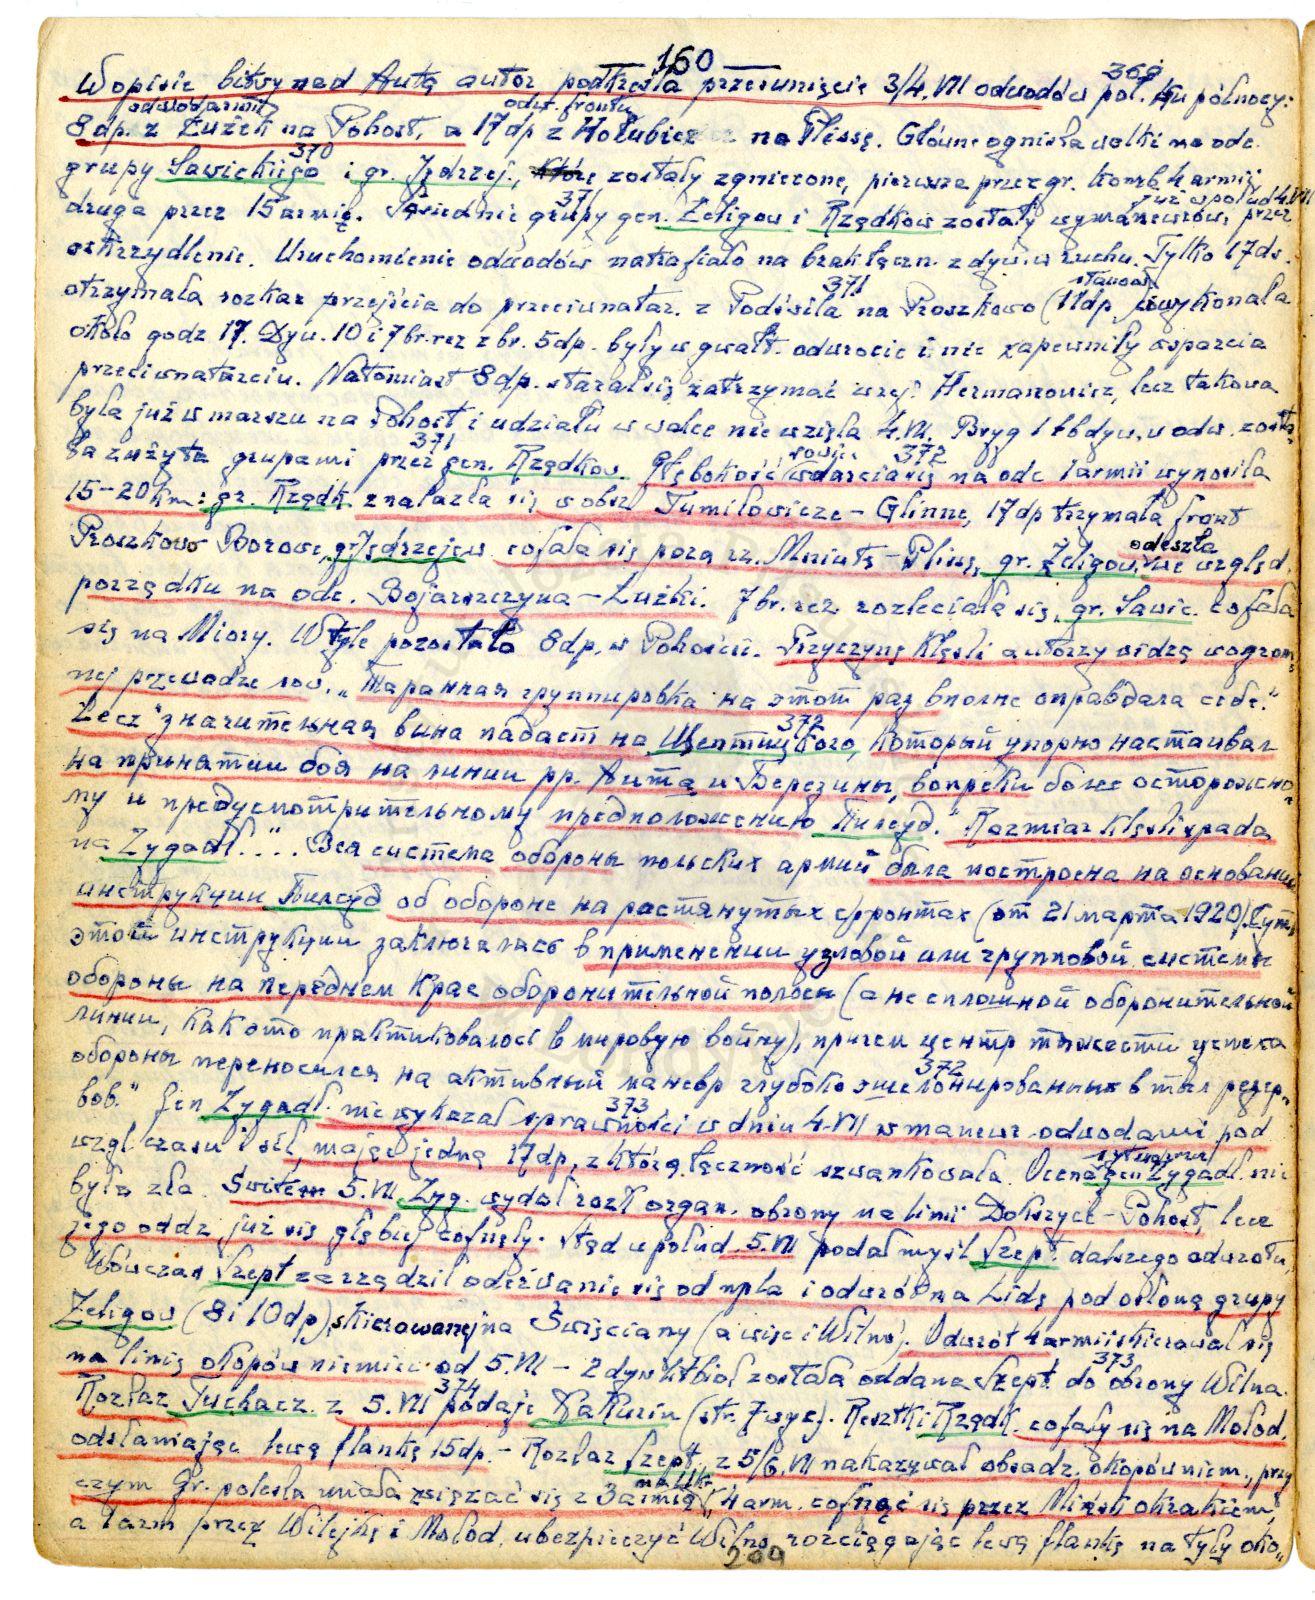 — 160 —
W opisie bitwy nad Autą autor podkreśla przesunięcie 3/4.VII odwodów pol. ku północy: 369
8dp. z Łużek na Pohost, a 17dp z Hołubicz na Plissę. Główne ogniska walki na odc. odwod armii odw. frontu
grupy Sawickiego i gr. Jędrzej., zostały zgniecone, pierwsza przez gr. komb. 4 armii 370
druga przez 15 armię. Średnie grupy gen. Żeligow i Rządkow zostały wymanewrow. przez 371 już w połud 4.VII
oskrzydlenie. Uruchomienie odwodów natrafiało na brak łączn. z dyw. w ruchu. Tylko 17 d.
otrzymała rozkaz przejścia do przeciwnatar. z Podświla na Proszkowo (11dp, wykonała 371
około godz 17. Dyw. 10 i 7 br. rez z br. 5dp. były w gwałt. odwrocie i nie zapewniły wsparcia
przeciwnatarciu. Natomiast 8dp. starał się zatrzymać w rej. Hermanowicz, lecz takowa
była już w marszu na Pohost i udziału w walce nie wzięła 4.VII. Bryg 1 dyw. w odw. zosta-
ła zużyta grupami przez gen. Rządkow. Głębokość wdarcia się na odc 1 armii wynosiła 371 sowiec 372
15-20 km: gr. Rządk. znalazła się w obsz Tumiłowicze – Glinne, 17dp trzymała front
Proszkowo Borowe, gr Jędrzejew. cofała się poza rz. Mniutę – Plisę, gr. Żeligow. we wzgląd. odeszła
porządku na odc. Bojarszczyna – Łużki. 7 br. rez. rozleciała się, gr. Sawic. cofała
się na Miory. W tyle pozostała 8dp. w Pohościu. Przyczynę klęski autorzy widzą w ogrom-
nej przewadze sow. „Таранная группировка на этот раз вполне оправдала себе."
Lecz "значительная вина падает на Шептицкого, который упорно настаивал 372
на принятии боя на линии рр. Аута и Березины, вопреки более осторожно-
му и предусмотрительному предположению Пилсуд." Rozmiar klęski spada
na Zygadł.... „Вся система обороны польских армий была построена на основании
инструкции Пилсуд об обороне на растянутых фронтах (от 21 марта 1920). Суть
этой инструкции заключалась в применении узловой или групповой системы
обороны на переднем крае оборонительной полосы (а не сплошной оборонительной
линии, как это практиковалось в мировую войну), причем центр тяжести успеха
обороны переносился на активный маневр глубоко эшелонированных в тыл резер- 372
вов." Gen Zygadł. nie wykazał sprawności w dniu 4.VII w manewr. odwodami pod 373
wzgl. czasu i sił, mając jedną 17dp, z którą łączność szwankowała. Ocena gen Zygadł. nie sytuacji
była zła. Świtem 5.VII Zyg. wydał rozk organ. obrony na linii Dokszyce – Pohost, lecz
jego oddz. już się głębiej cofnęły. Stąd w połud. 5.VII podał myśl Szept. dalszego odwrotu,
Wówczas Szept zarządził oderwanie się od npla i odwrót na Lidę pod osłoną grupy
Żeligow (8 i 10dp), skierowanej na Święciany (a więc i Wilno). Odwrót 4 armii skierował się
na linię okopów niemiec. od 5.VII – 2 dyw Lit biał została oddana Szept. do obrony Wilna. 373
Rozkaz Tuchacz. z 5.VII podaje Kakurin (str. 7 wyc). Resztki Rządk. cofały się na Mołod. 374
odsłaniając lewą flankę 15dp. – Rozkaz Szept. z 5/6.VII nakazywał obsadz. okopów niem., przy
czym Gr. poleska miała związać się z 3 armią, 4 arm. cofnąć się przez Mińsk okrakiem, na Ukr.
a 1 arm przez Wilejkę i Mołod. ubezpieczyć Wilno, rozciągając lewą flankę na tyły oko-
209